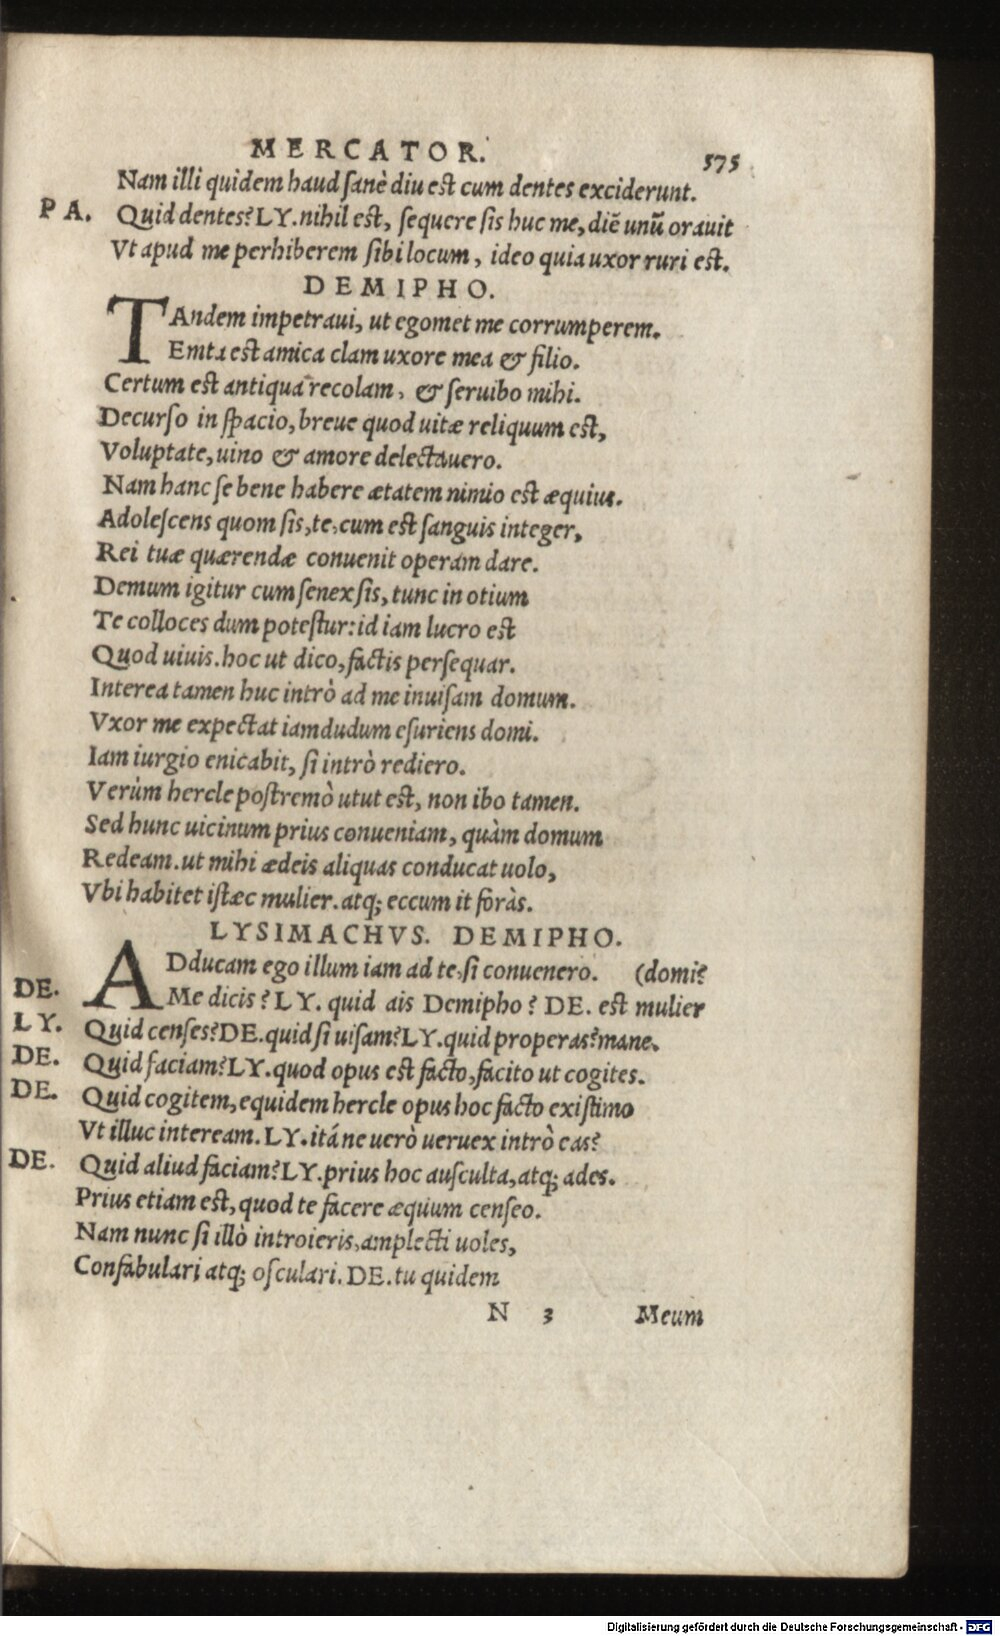 MERCATOR. 575
Nam illi quidem haud ſanè diu est cum dentes exciderunt.
PA. Quid dentes? LY. nihil est, ſequere ſis huc me, diē unū orauit
Vt apud me perhiberem ſibi locum, ideo quia uxor ruri est.
DEMIPHO.
TAndem impetraui, ut egomet me corrumperem.
Emta est amica clam uxore mea & filio.
Certum est antiqua recolam, & ſeruibo mihi.
Decurſo in ſpacio, breue quod uitæ reliquum est,
Voluptate, uino & amore delectauero.
Nam hanc ſe bene habere ætatem nimio est æquius.
Adoleſcens quom ſis, te, cum est ſanguis integer,
Rei tuæ quærendæ conuenit operam dare.
Demum igitur cum ſenex ſis, tunc in otium
Te colloces dum poteſtur: id iam lucro est
Quod uiuis. hoc ut dico, factis perſequar.
Interea tamen huc intrò ad me inuiſam domum.
Vxor me expectat iamdudum eſuriens domi.
Iam iurgio enicabit, ſi intrò rediero.
Verùm hercle poſtremò utut est, non ibo tamen.
Sed hunc uicinum prius conueniam, quàm domum
Redeam. ut mihi ædeis aliquas conducat uolo,
Vbi habitet iſtæc mulier. atq; eccum it foràs.
LYSIMACHVS. DEMIPHO.
ADducam ego illum iam ad te, ſi conuenero. (domi?
DE. Me dicis? LY. quid ais Demipho? DE. est mulier
LY. Quid cenſes? DE. quid ſi uiſam? LY. quid properas? mane.
DE. Quid faciam? LY. quod opus est facto, facito ut cogites.
DE. Quid cogitem, equidem hercle opus hoc facto exiſtimo
Vt illuc interea m. LY. itáne uerò ueruex intrò eas?
DE. Quid aliud faciam? LY. prius hoc auſculta, atq; ades.
Prius etiam est, quod te facere æquum cenſeo.
Nam nunc ſi illò introieris, amplecti uoles,
Confabulari atq; oſculari. DE. tu quidem
N 3 Meum
Digitalisierung gefördert durch die Deutsche Forschungsgemeinschaft - DFG